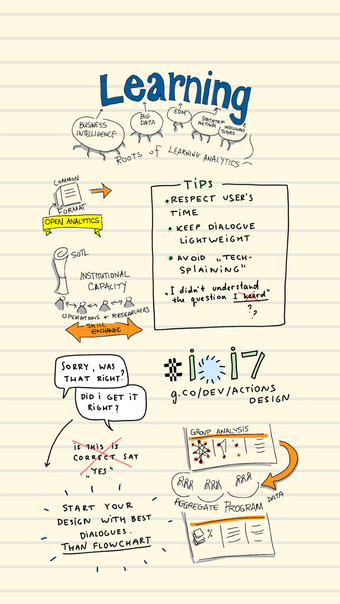 Learning
BUSINESS
INTELLIGENCE
BIG
DATA
EDM
STATISTICAL
METHODS
INTELLIGENT
TUTORS
ROOTS of LEARNING ANALYTICS
COMMON
FORMAT
OPEN ANALYTICS
SOTL
INSTITUTIONAL
CAPACITY
OPERATIONS + RESEARCHERS
SKILL
EXCHANGE
TIPS
• RESPECT USER'S
TIME
• KEEP DIALOGUE
LIGHTWEIGHT
• AVOID „TECH-
SPLAINING"
"I didn't understand
the question I heard"
? ? ?
SORRY, WAS
THAT RIGHT?
DID i GET iT
RiGHT?
IF THIS IS
CORRECT SAY
„YES"
START YOUR
DESIGN WITH BEST
DIALOGUES.
THAN FLOWCHART
#io17
g.co/DEV/ACTIONS
DESIGN
GROUP ANALYSIS
DATA
AGGREGATE PROGRAM
%